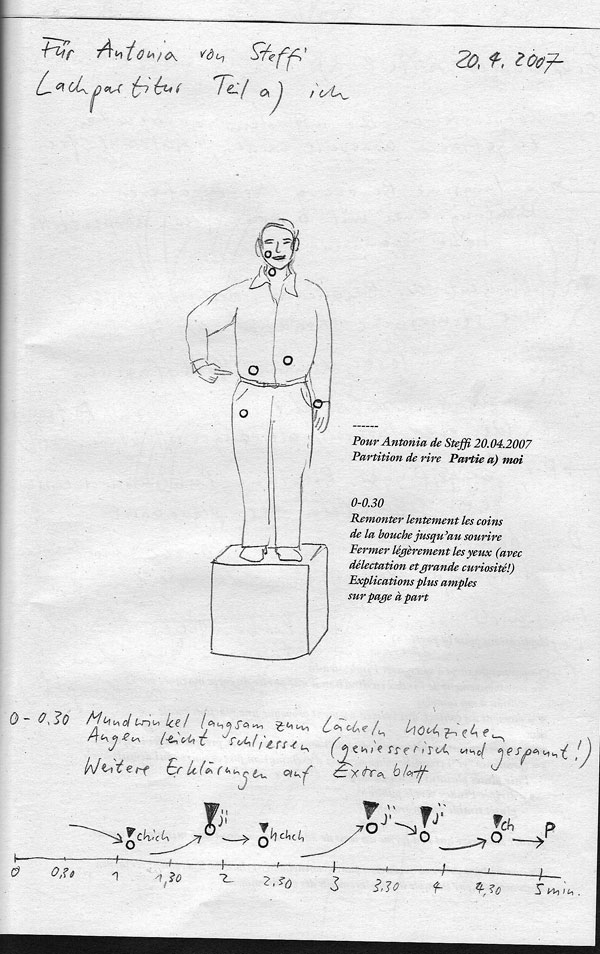 Für Antonia von Steffi 20.4.2007
Lachpartitur Teil a) ich
------
Pour Antonia de Steffi 20.04.2007
Partition de rire Partie a) moi
0-0.30
Remonter lentement les coins
de la bouche jusqu'au sourire
Fermer légèrement les yeux (avec
délectation et grande curiosité!)
Explications plus amples
sur page à part
0-0.30 Mundwinkel langsam zum Lächeln hochziehen
Augen leicht schliessen (geniesserisch und gespannt!)
Weitere Erklärungen auf Extrablatt
chich ji hchch ji ji ch P
0 0,30 1 1,30 2 2,30 3 3,30 4 4,30 5 min.